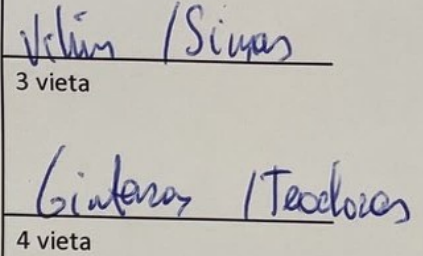 Vilius /Simas
3 vieta
Gintaras /Teodoras
4 vieta